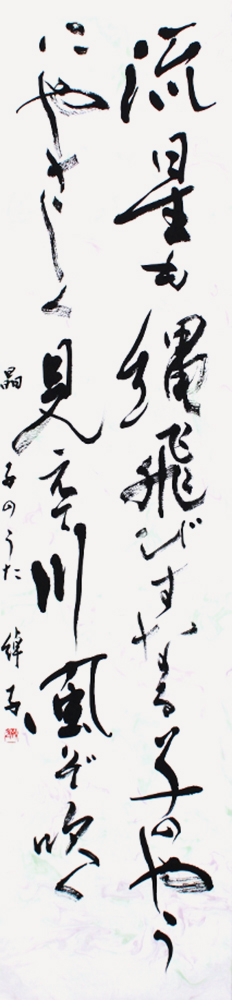 流星も縄飛びすなる子のやう
にやさしく見えて川風ぞ吹く
晶子のうた 繂子